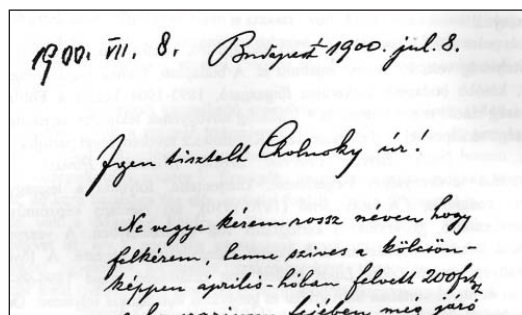 1900. VII. 8. Budapest 1900. júl. 8.
Igen tisztelt Cholnoky úr!
Ne vegye kérem rossz néven hogy
felkérem, lenne szíves a kölcsön-
képpen április-hóban felvett 200frt
fejében még járó